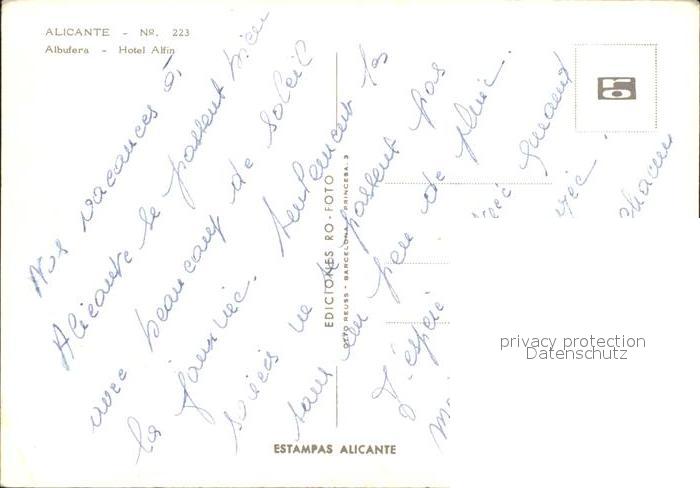 ALICANTE - Nº. 223
Albufera - Hotel Alfin
Nos vacances à
Alicante se passent bien
avec beaucoup de soleil
la journée. Seulement les
soirées ne se passent pas
sans un peu de pluie.
J'espère
EDICIONES RO-FOTO
OTTO REUSS - BARCELONA - PRINCESA, 3
ro
ESTAMPAS ALICANTE
privacy protection
Datenschutz